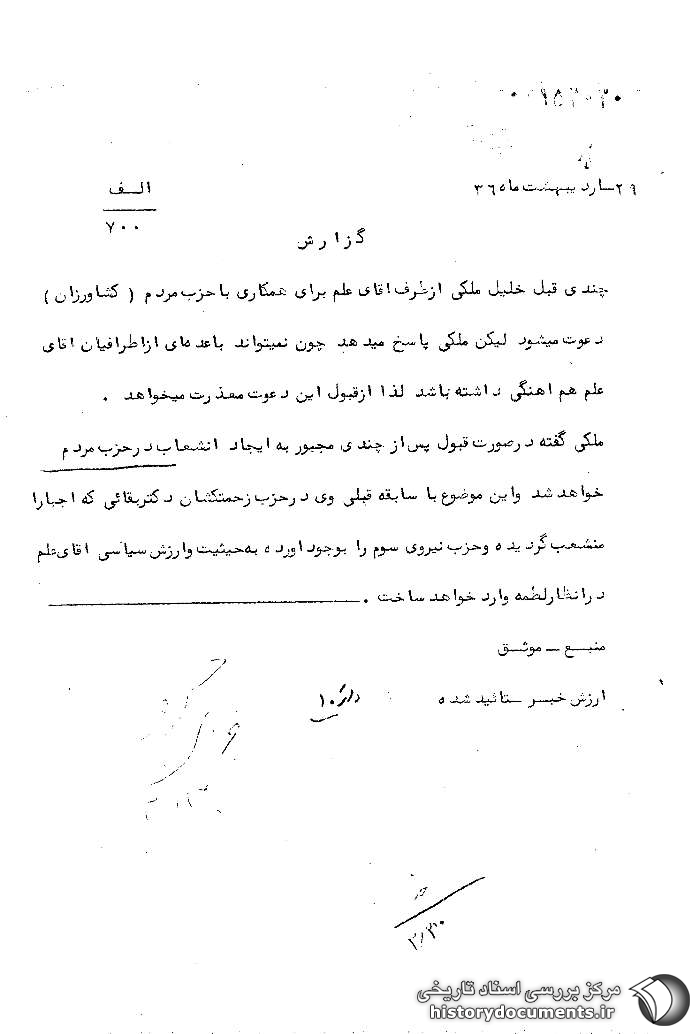 ۰۱۵۲۰۳۰
۲۹ـاردیبهشت ماه ۳۶
الـف
۷۰۰
گزارش
چندی قبل خلیل ملکی ازطرف اقای علم برای همکاری با حزب مردم ( کشاورزان )
دعوت میشود لیکن ملکی پاسخ میدهد چون نمیتواند باعدهای ازاطرافیان اقای
علم هم اهنگی داشته باشد لذا ازقبول این دعوت معذرت میخواهد .
ملکی گفته درصورت قبول پس از چندی مجبور به ایجاد انشعاب در حزب مردم
خواهد شد واین موضوع با سابقه قبلی وی درحزب زحمتکشان دکتربقائی که اجبارا
منشعب گردیده وحزب نیروی سوم را بوجود اورده به حیثیت وارزش سیاسی اقای علم
درانظار لطمه وارد خواهد ساخت .
منبـع ـ موثـق
ارزش خبـر ـ تائید شده
۱۰
۲/۳۰
مرکز بررسی اسناد تاریخی
historydocuments.ir